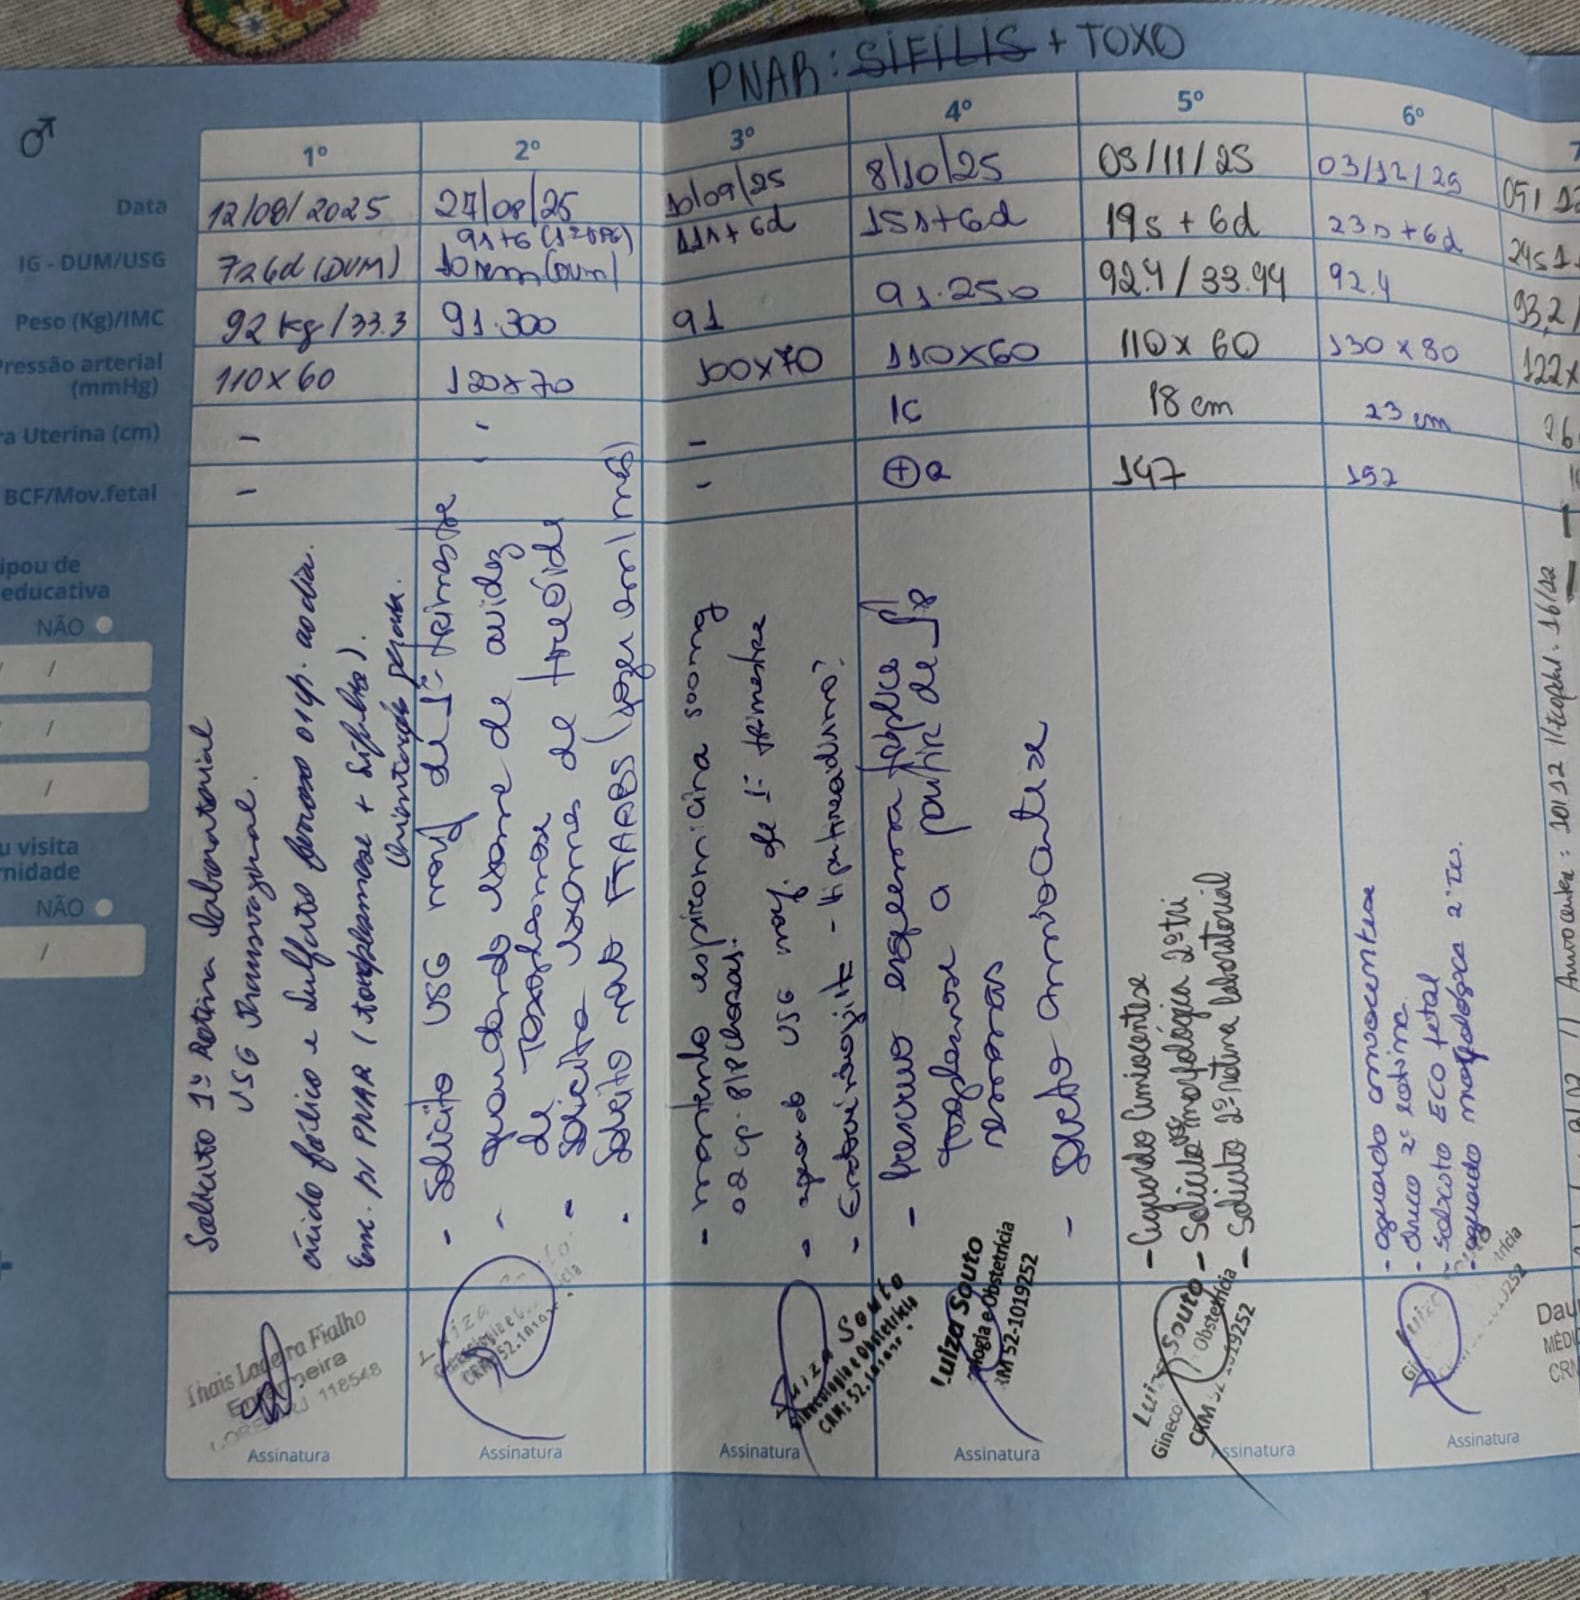 PNAR: SÍFILIS + TOXO
1º 2º 3º 4º 5º 6º 7
Data 12/08/2025 27/08/25 10/09/25 8/10/25 05/11/25 03/12/25 05/12
9s+6 (1ª USG)
IG - DUM/USG 7s 6d (DUM) 10 sem (DUM) 11s+6d 15s+6d 19s + 6d 23s+6d 24s
Peso (Kg)/IMC 92 kg/33.3 91.300 91 91.250 92.4/33.94 92.4 93,2/
Pressão arterial
(mmHg) 110x60 120x70 100x70 110x60 110x60 130x80 122x
ra Uterina (cm) - - - IC 18 cm 23 cm 26
BCF/Mov.fetal - - - + 147 152
ipou de
educativa
NÃO
/
/
/
u visita
rnidade
NÃO
/
Solicito 1ª Rotina laboratorial
USG transvaginal.
ácido fólico e sulfato ferroso 01cp. ao dia.
Enc. p/ PNAR (toxoplasmose + sífilis).
Orientações
- Solicito USG morf de 1º trimestre
- aguardando exame de avidez
de Toxoplasmose
- Solicito exames de tireóide
- Solicito novo FTABS
- mantendo espiramicina 500mg
02 cp 8/8 horas.
- aguardo USG morf. de 1º trimestre
- - Hipotireoidismo?
- Prescrevo esquema tríplice p/
toxoplasmose a partir de 18
semanas
- Solicito amniocentese
- Aguardo Amniocentese
- Solicito USG morfológica 2º tri
- Solicito 2ª rotina laboratorial
- aguardo amniocentese
- 2ª rotina
- solicito ECO fetal
- aguardo morfológica 2º Tri.
Amniocentese: 10/12 // 16/12
Thais Ladeira Fialho
Enfermeira
118548
Assinatura
Luiza
Assinatura
Luiza Souto
Ginecologia e Obstetrícia
CRM: 52.
Assinatura
Luiza Souto
ologia e Obstetrícia
RM 52-1019252
Assinatura
Luiza Souto
Gineco Obstetrícia
CRM 52 1019252
Assinatura
Luiza
Gi trícia
Assinatura
Dau
MÉDI
CRM